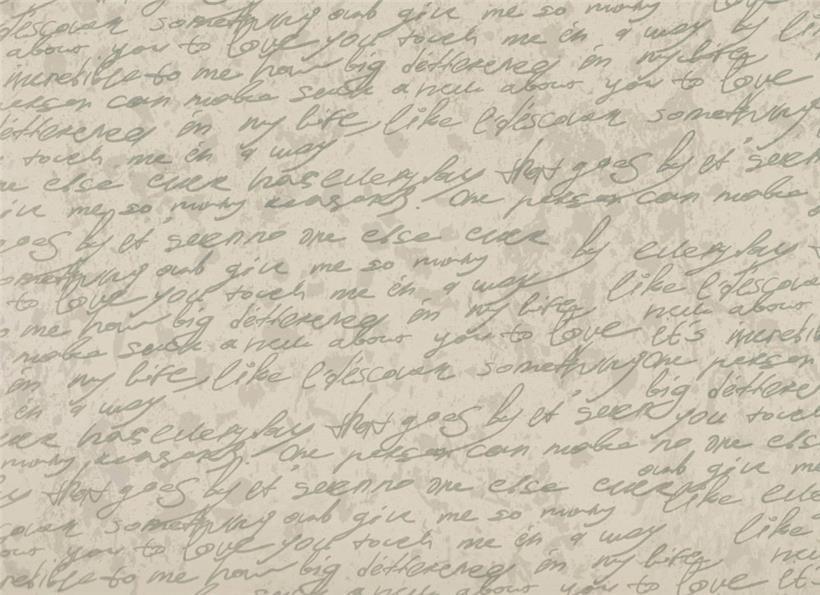 descover something oub give me so many by li
about you to love you touch me in a way like
incredible to me how big defferened in my life
person can make such a new about you to love
defferened in my life like I descover something
touch me in a way
one else ever has everyday that goes by it seem
give me so many reasons. One person can make
goes by it seem no one else ever by everyday
something oub give me so many
to love you touch me in a way like I descove
me how big defferened in my life new about
make such a new about you to love it's incredib
in my life like I descover something One person
in a way big deffere
ever has everyday that goes by it seem you touch
many reasons. One person can make no one els
oub give me
that goes by it seem no one else ever like eve
descover something oub give me so many
you to love you touch me in a way like
incredible to me how big defferened in my life
such a new about you to love it's